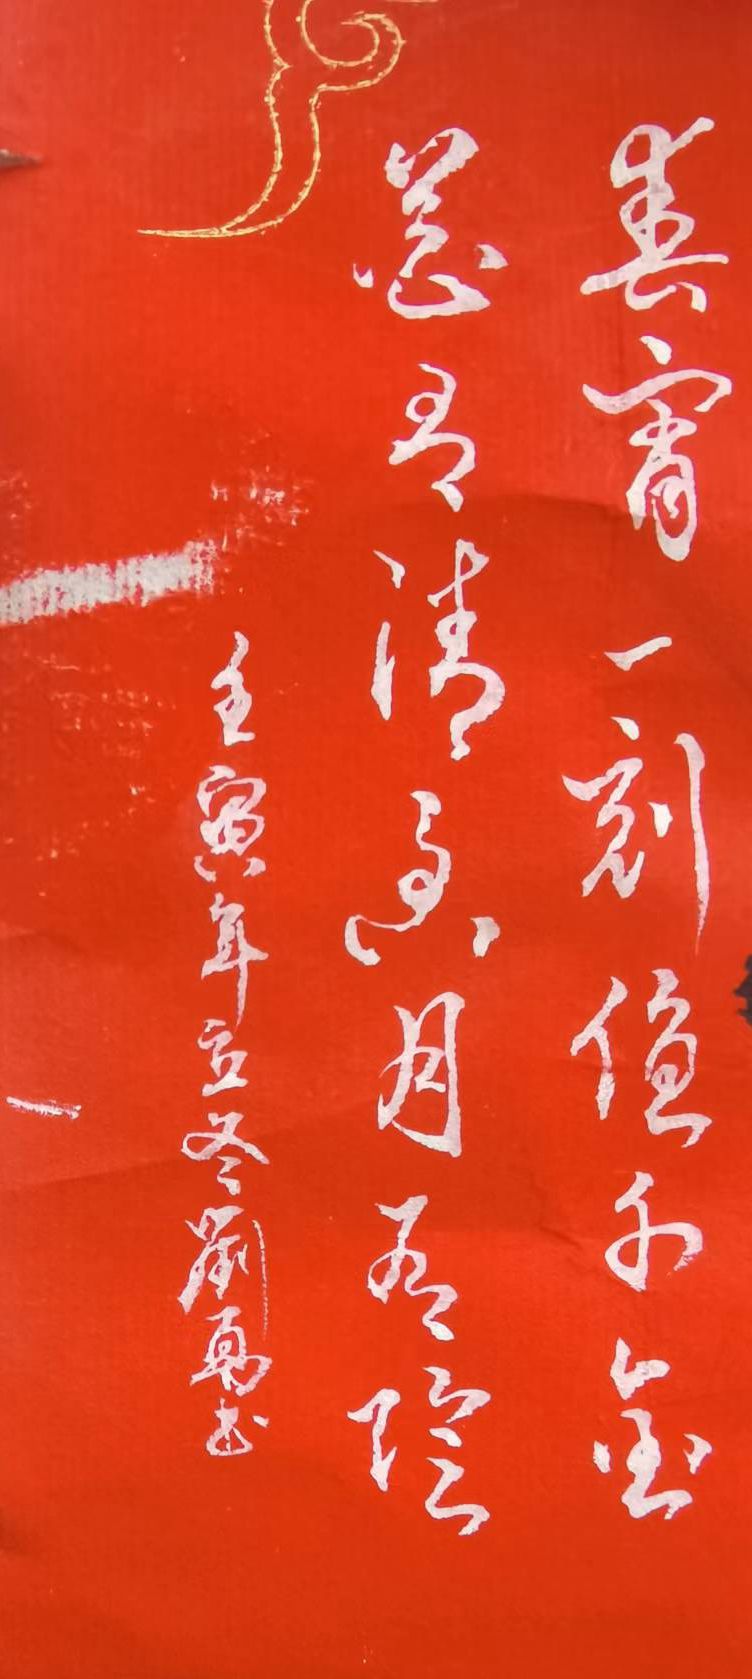 春宵一刻值千金
花有清香月有阴
壬寅年立冬刘勇书